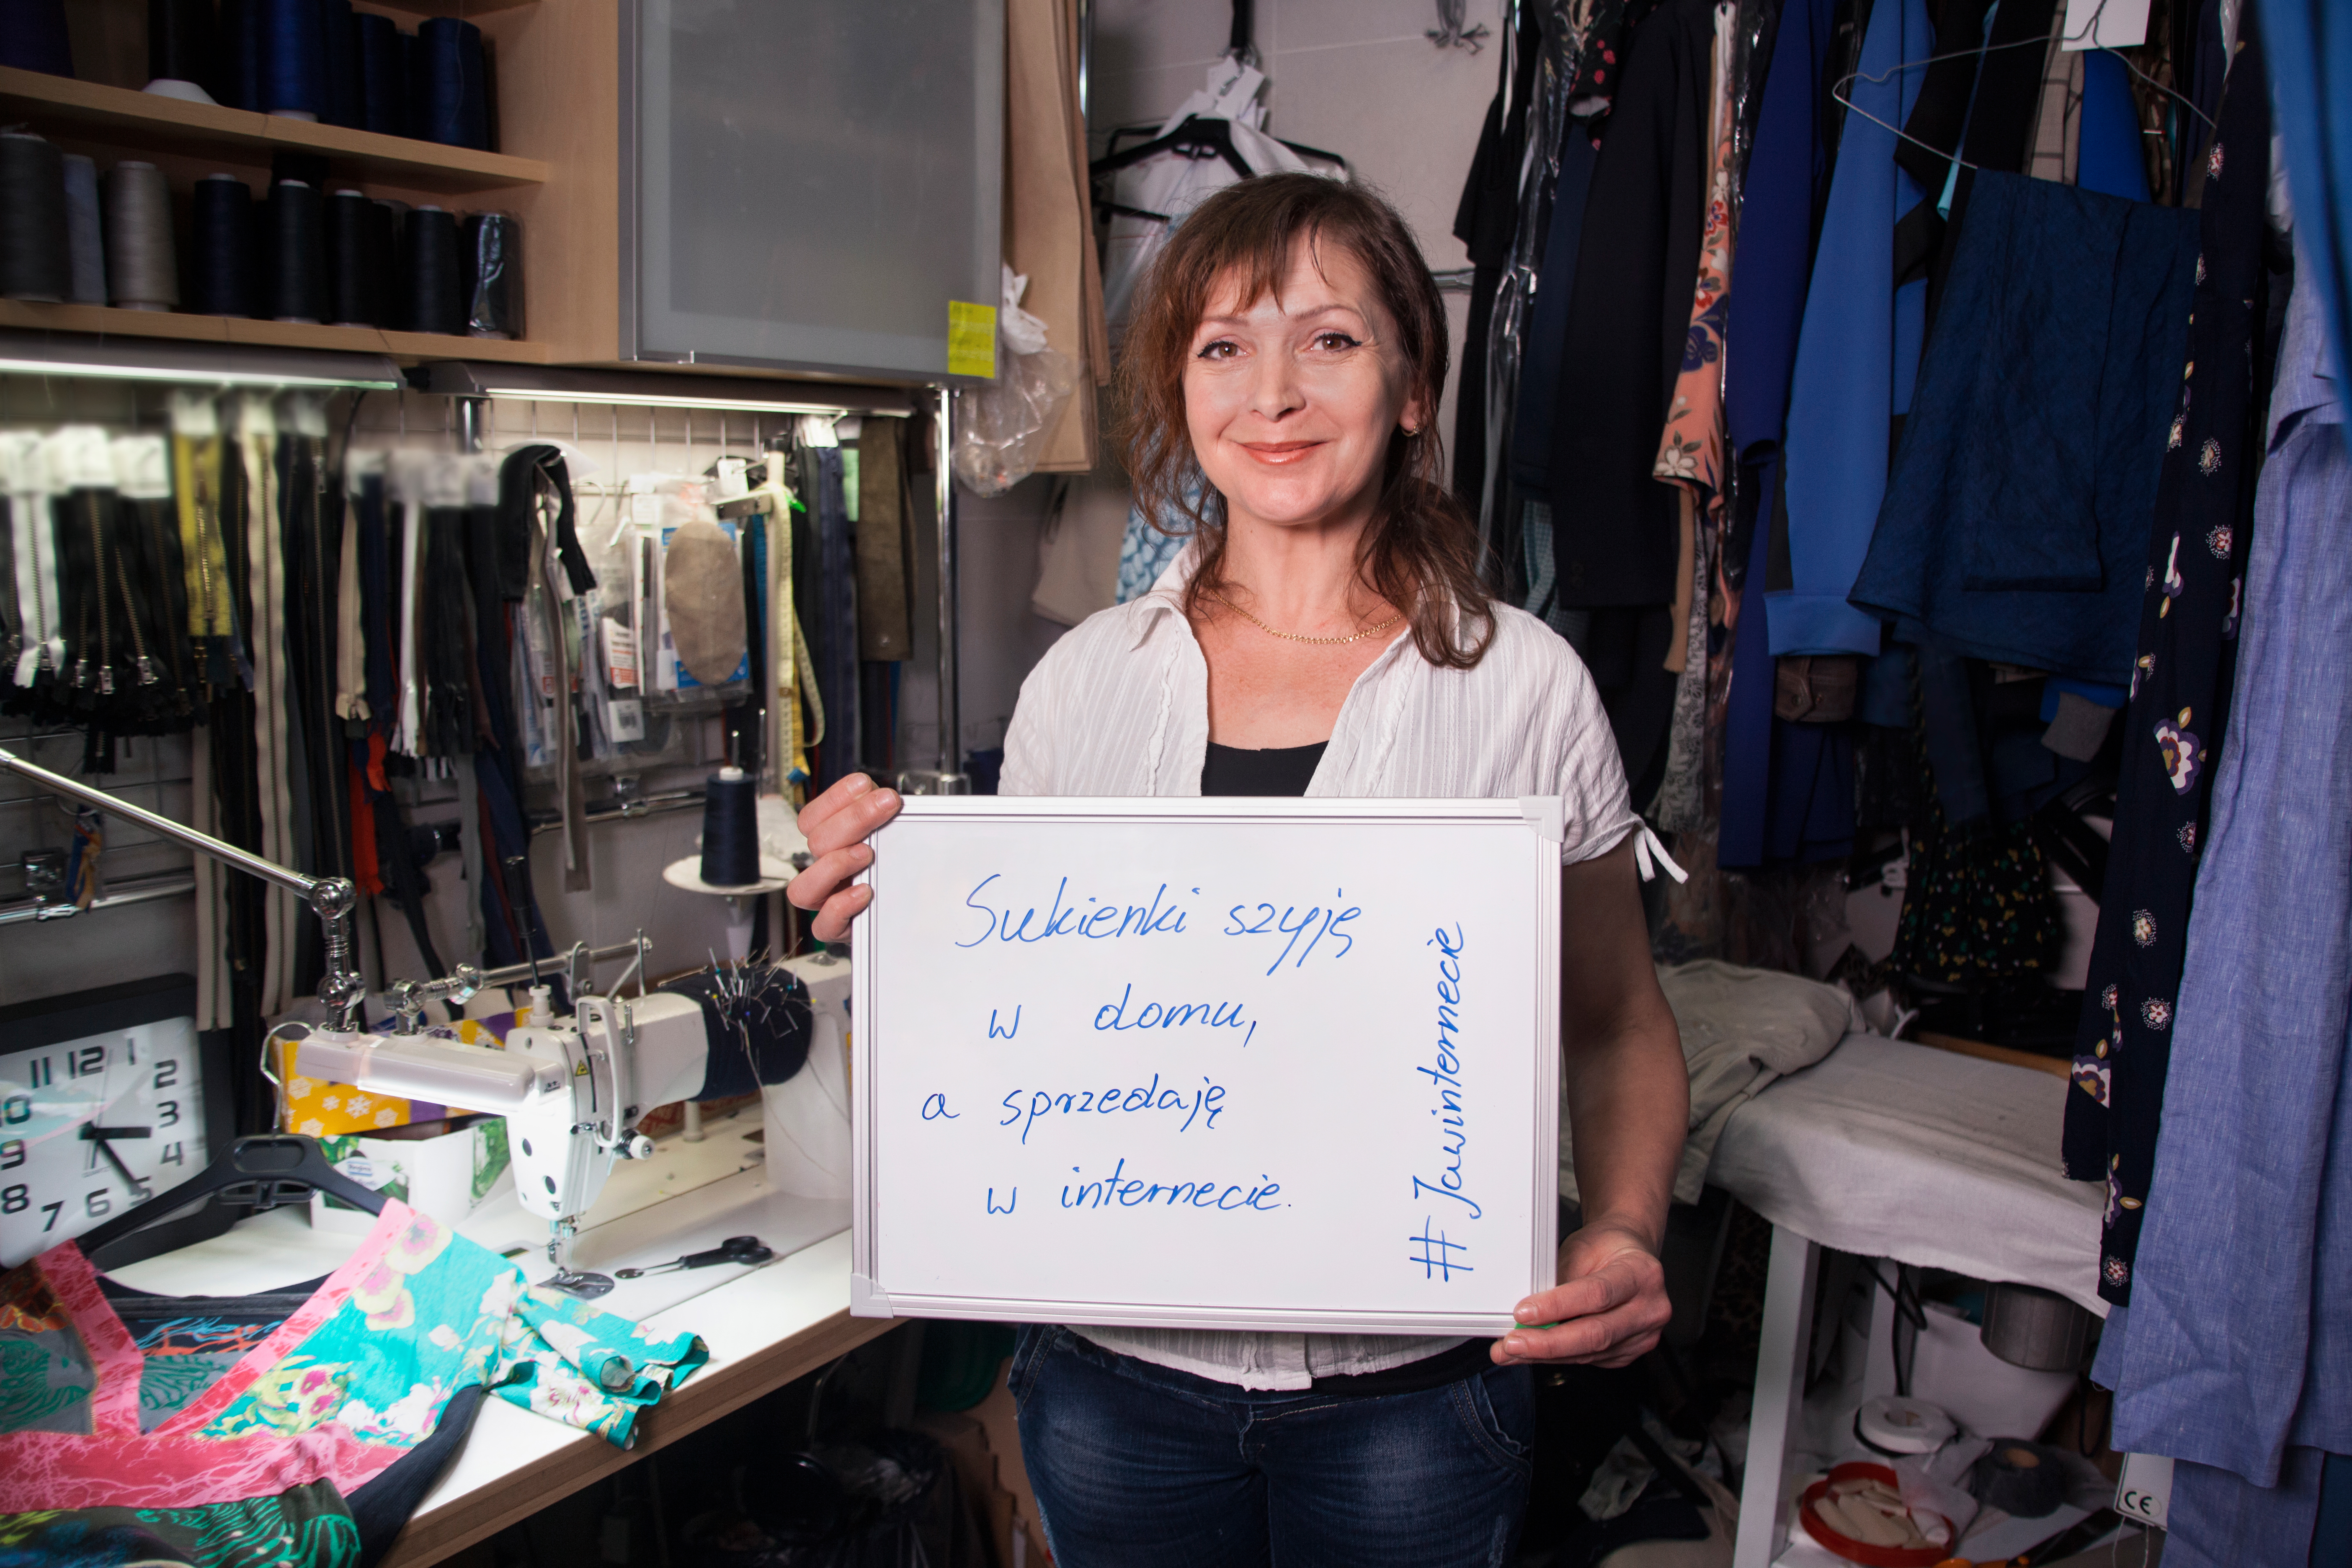 Sukienki szyję
w domu,
a sprzedaję
w internecie.
#Jawinternecie
11 12 1
10 2
9 3
8 4
7 6 5
CE